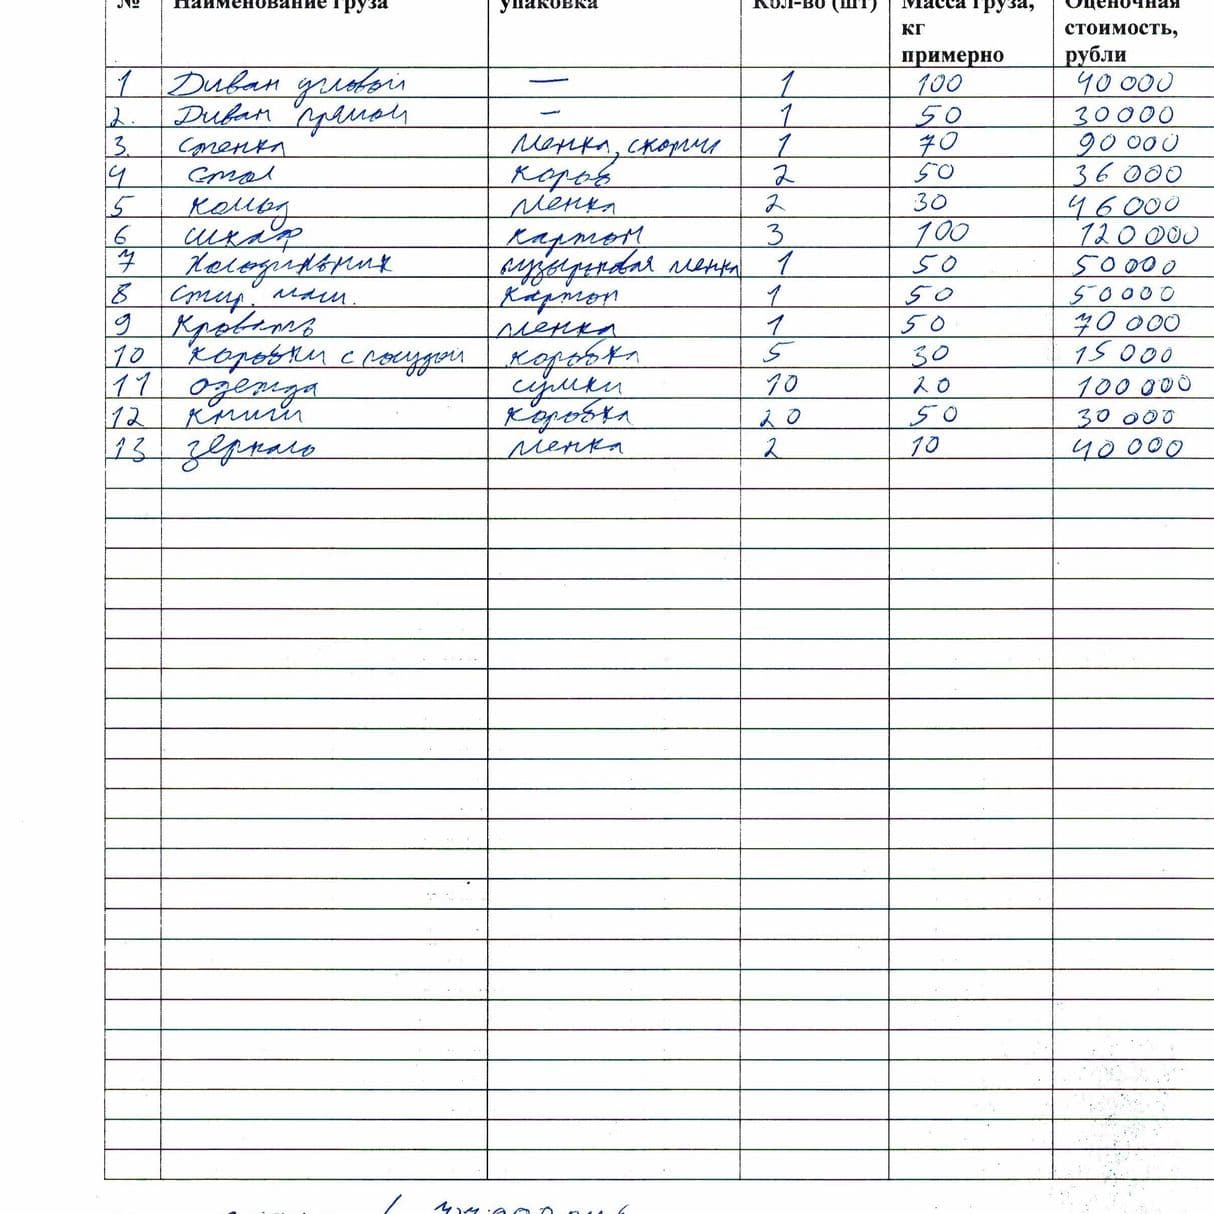 № Наименование груза упаковка Кол-во (шт) Масса груза, кг примерно Оценочная стоимость, рубли
1 Диван угловой — 1 100 40 000
2. Диван прямой — 1 50 30000
3. Стенка Пленка, скотч 1 70 90 000
4 Стол Короб 2 50 36 000
5 Комод Пленка 2 30 46 000
6 Шкаф Картон 3 100 120 000
7 Холодильник пузырьковая пленка 1 50 50000
8 Стир. маш. Картон 1 50 50000
9 Кровать пленка 1 50 70 000
10 Коробки с посудой коробка 5 30 15 000
11 одежда сумки 10 20 100 000
12 книги Коробка 20 50 30 000
13 зеркало Пленка 2 10 40 000